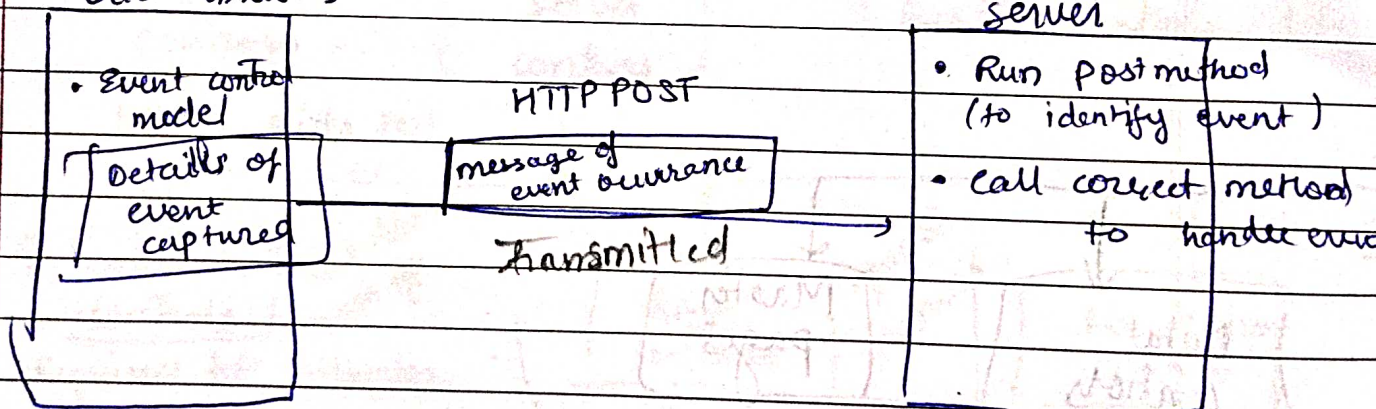 server
• Event control
model
Details of
event
captured
HTTP POST
message of
event ocurrance
Transmitted
• Run post method
(to identify event)
• Call correct method
to handle